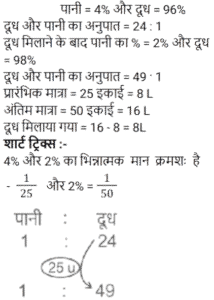 पानी = 4% और दूध = 96%
दूध और पानी का अनुपात = 24 : 1
दूध मिलाने के बाद पानी का % = 2% और दूध
= 98%
दूध और पानी का अनुपात = 49 : 1
प्रारंभिक मात्रा = 25 इकाई = 8 L
अंतिम मात्रा = 50 इकाई = 16 L
दूध मिलाया गया = 16 - 8 = 8L
शार्ट ट्रिक्स :-
4% और 2% का भिन्नात्मक मान क्रमशः है
- 1/25 और 2% = 1/50
पानी : दूध
1 : 24
25 u
1 : 49